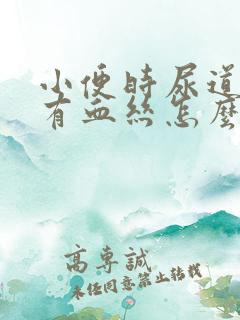 小便時尿道
有血絲怎麼
高專誠
未經同意禁止轉載